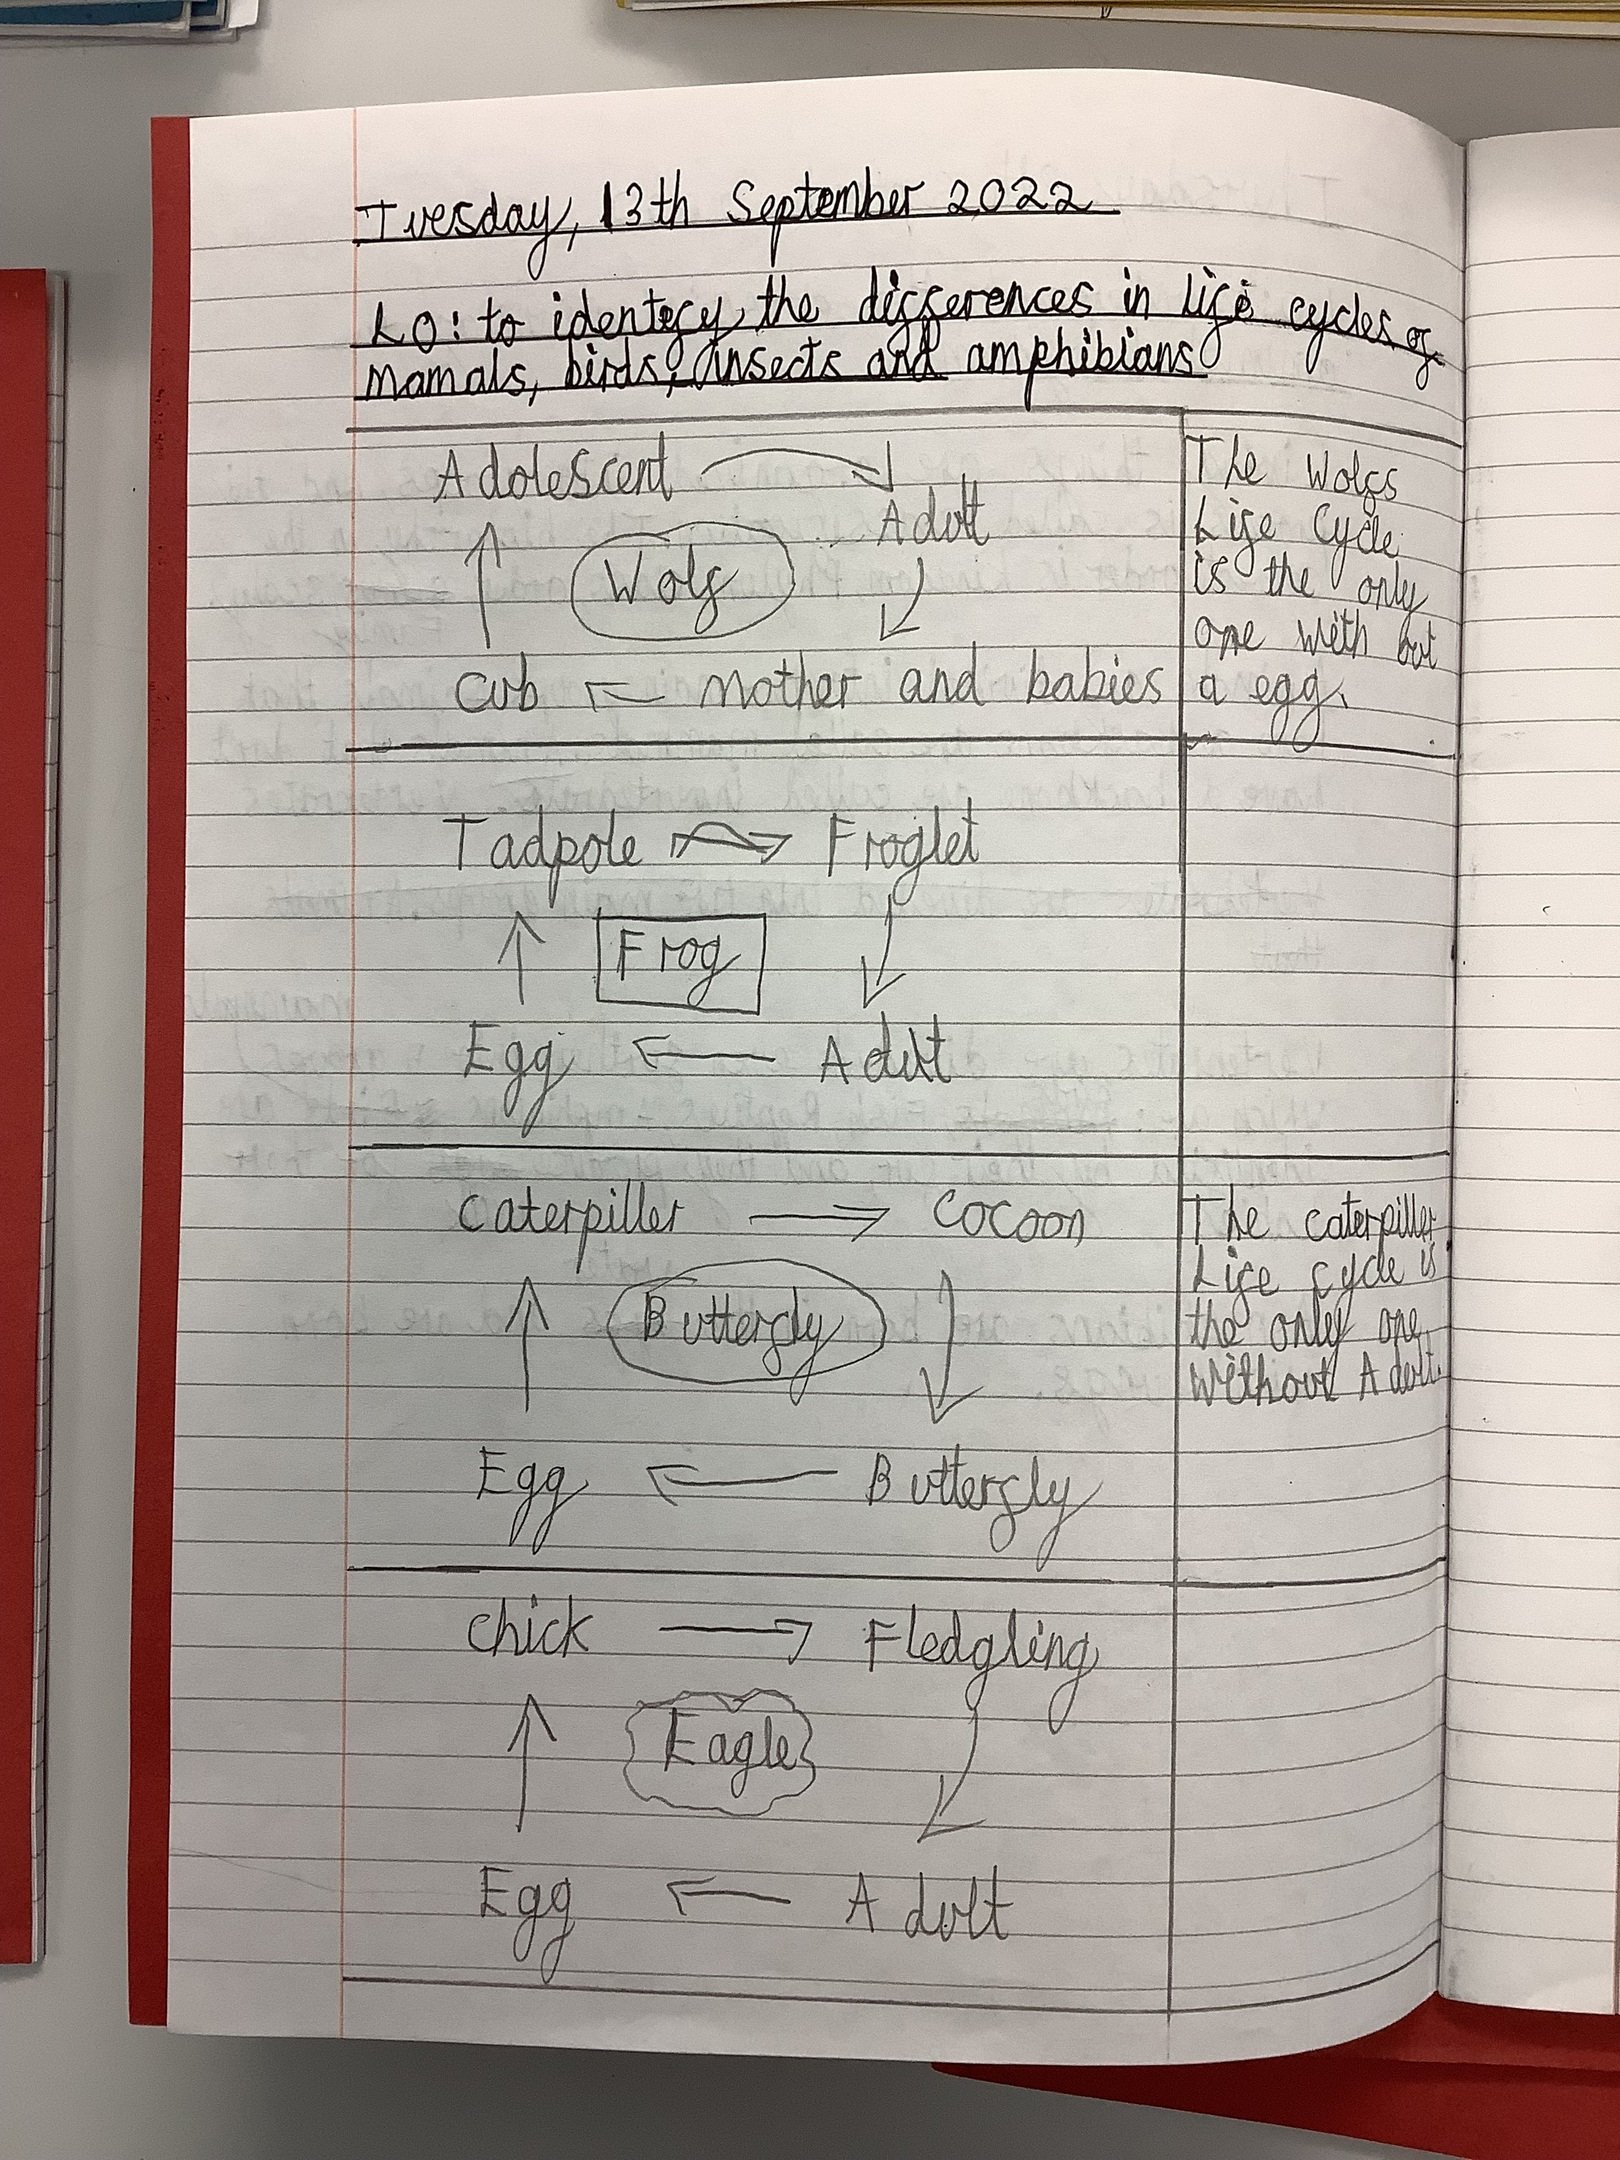 Tuesday, 13th September 2022
LO: to identefy the differences in life cycles of
mamals, birds, insects and amphibians
Adolescent
Adult
Wolf
Cub
mother and babies
The Wolfs
Life Cycle
is the only
one with out
a egg.
Tadpole
Froglet
Frog
Egg
Adult
Caterpiller
Cocoon
Butterfly
Egg
Butterfly
The caterpiller
Life cycle is
the only one
without Adult.
Chick
Fledgling
Eagle
Egg
Adult